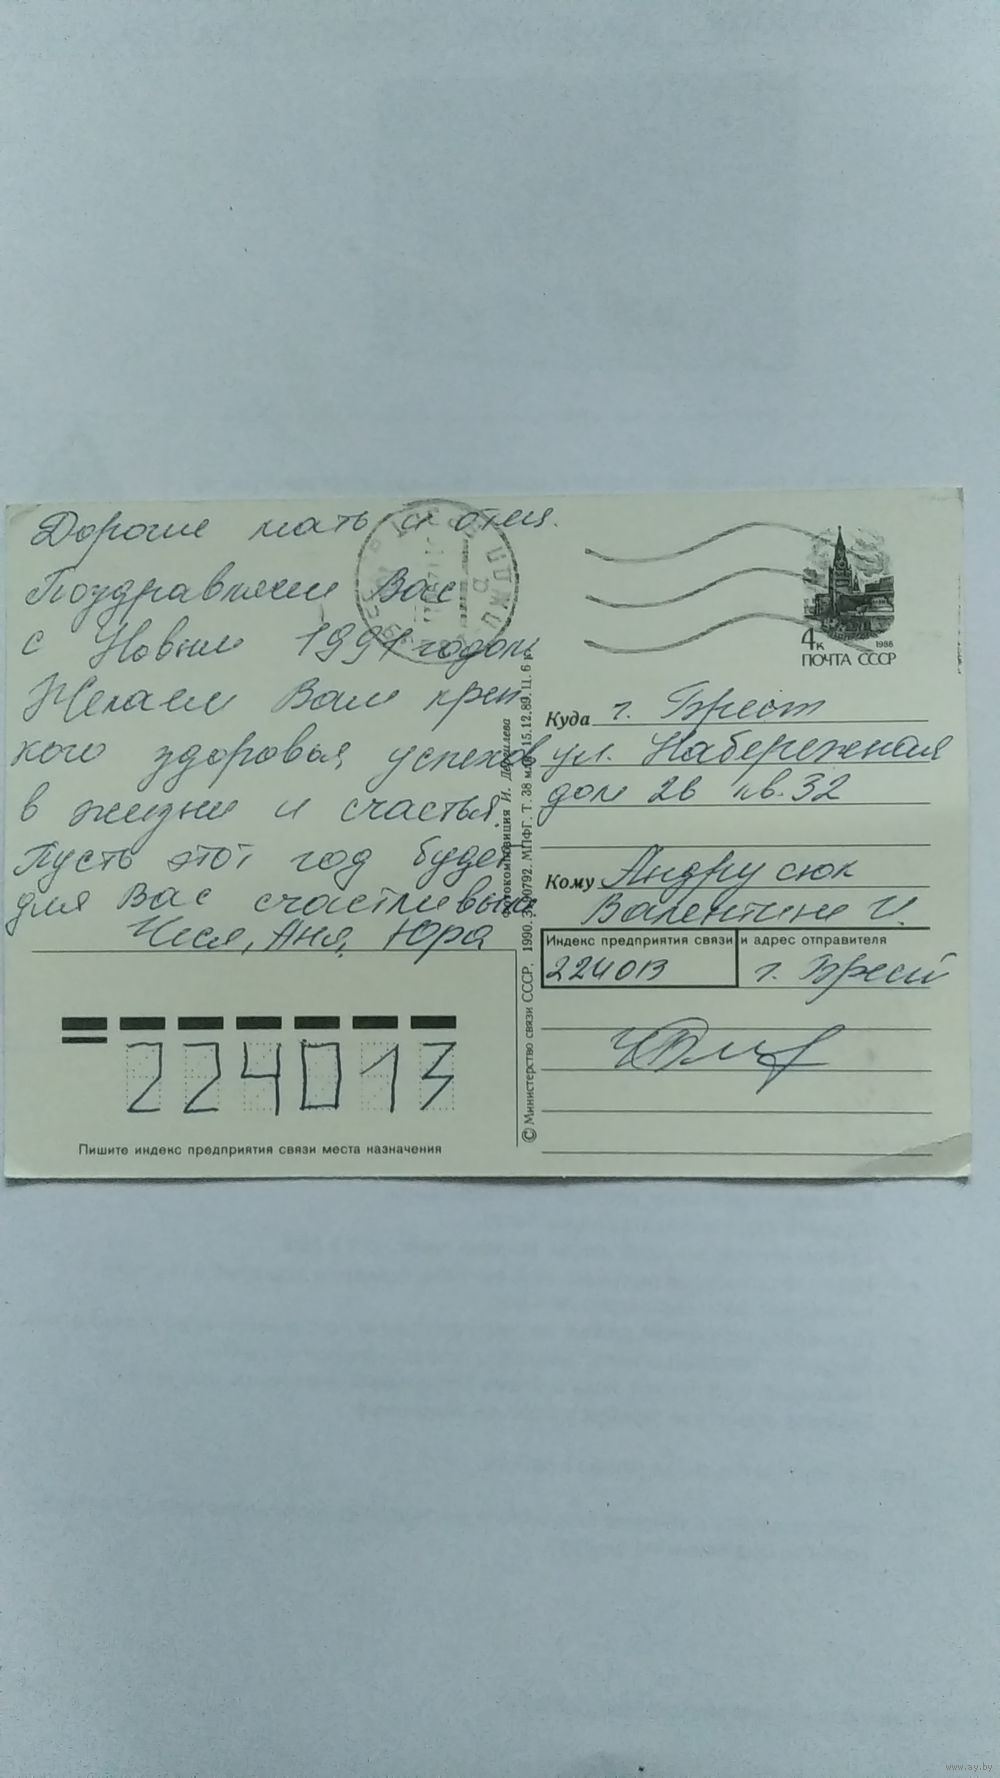 Дорогие мать и отец.
Поздравляем Вас
с Новым 1991 годом
Желаем Вам креп
кого здоровья успехов
в жизни и счастья.
Пусть этот год будет
для Вас счастливым
Аня, Юра
4к
1988
ПОЧТА СССР
Куда г. Брест
ул. Набережная
дом 26 кв. 32
Кому Андрусюк
Валентине И.
Индекс предприятия связи и адрес отправителя
224013 г. Брест
224013
Пишите индекс предприятия связи места назначения
© Министерство связи СССР. 1990. МПФГ. Т. 38 15.12.89. Ц. 6 к.
И.
www.ay.by